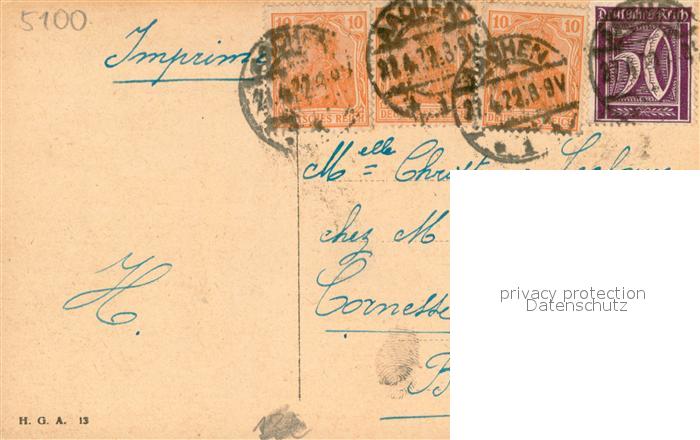 5100
Imprimé
10 10 10 10
Deutsches Reich
50
DEUTSCHES REICH
AACHEN
21.4.22.8-9V
1
Melle Christ
chez M
Cornesse
B
H.
privacy protection
Datenschutz
H. G. A. 13